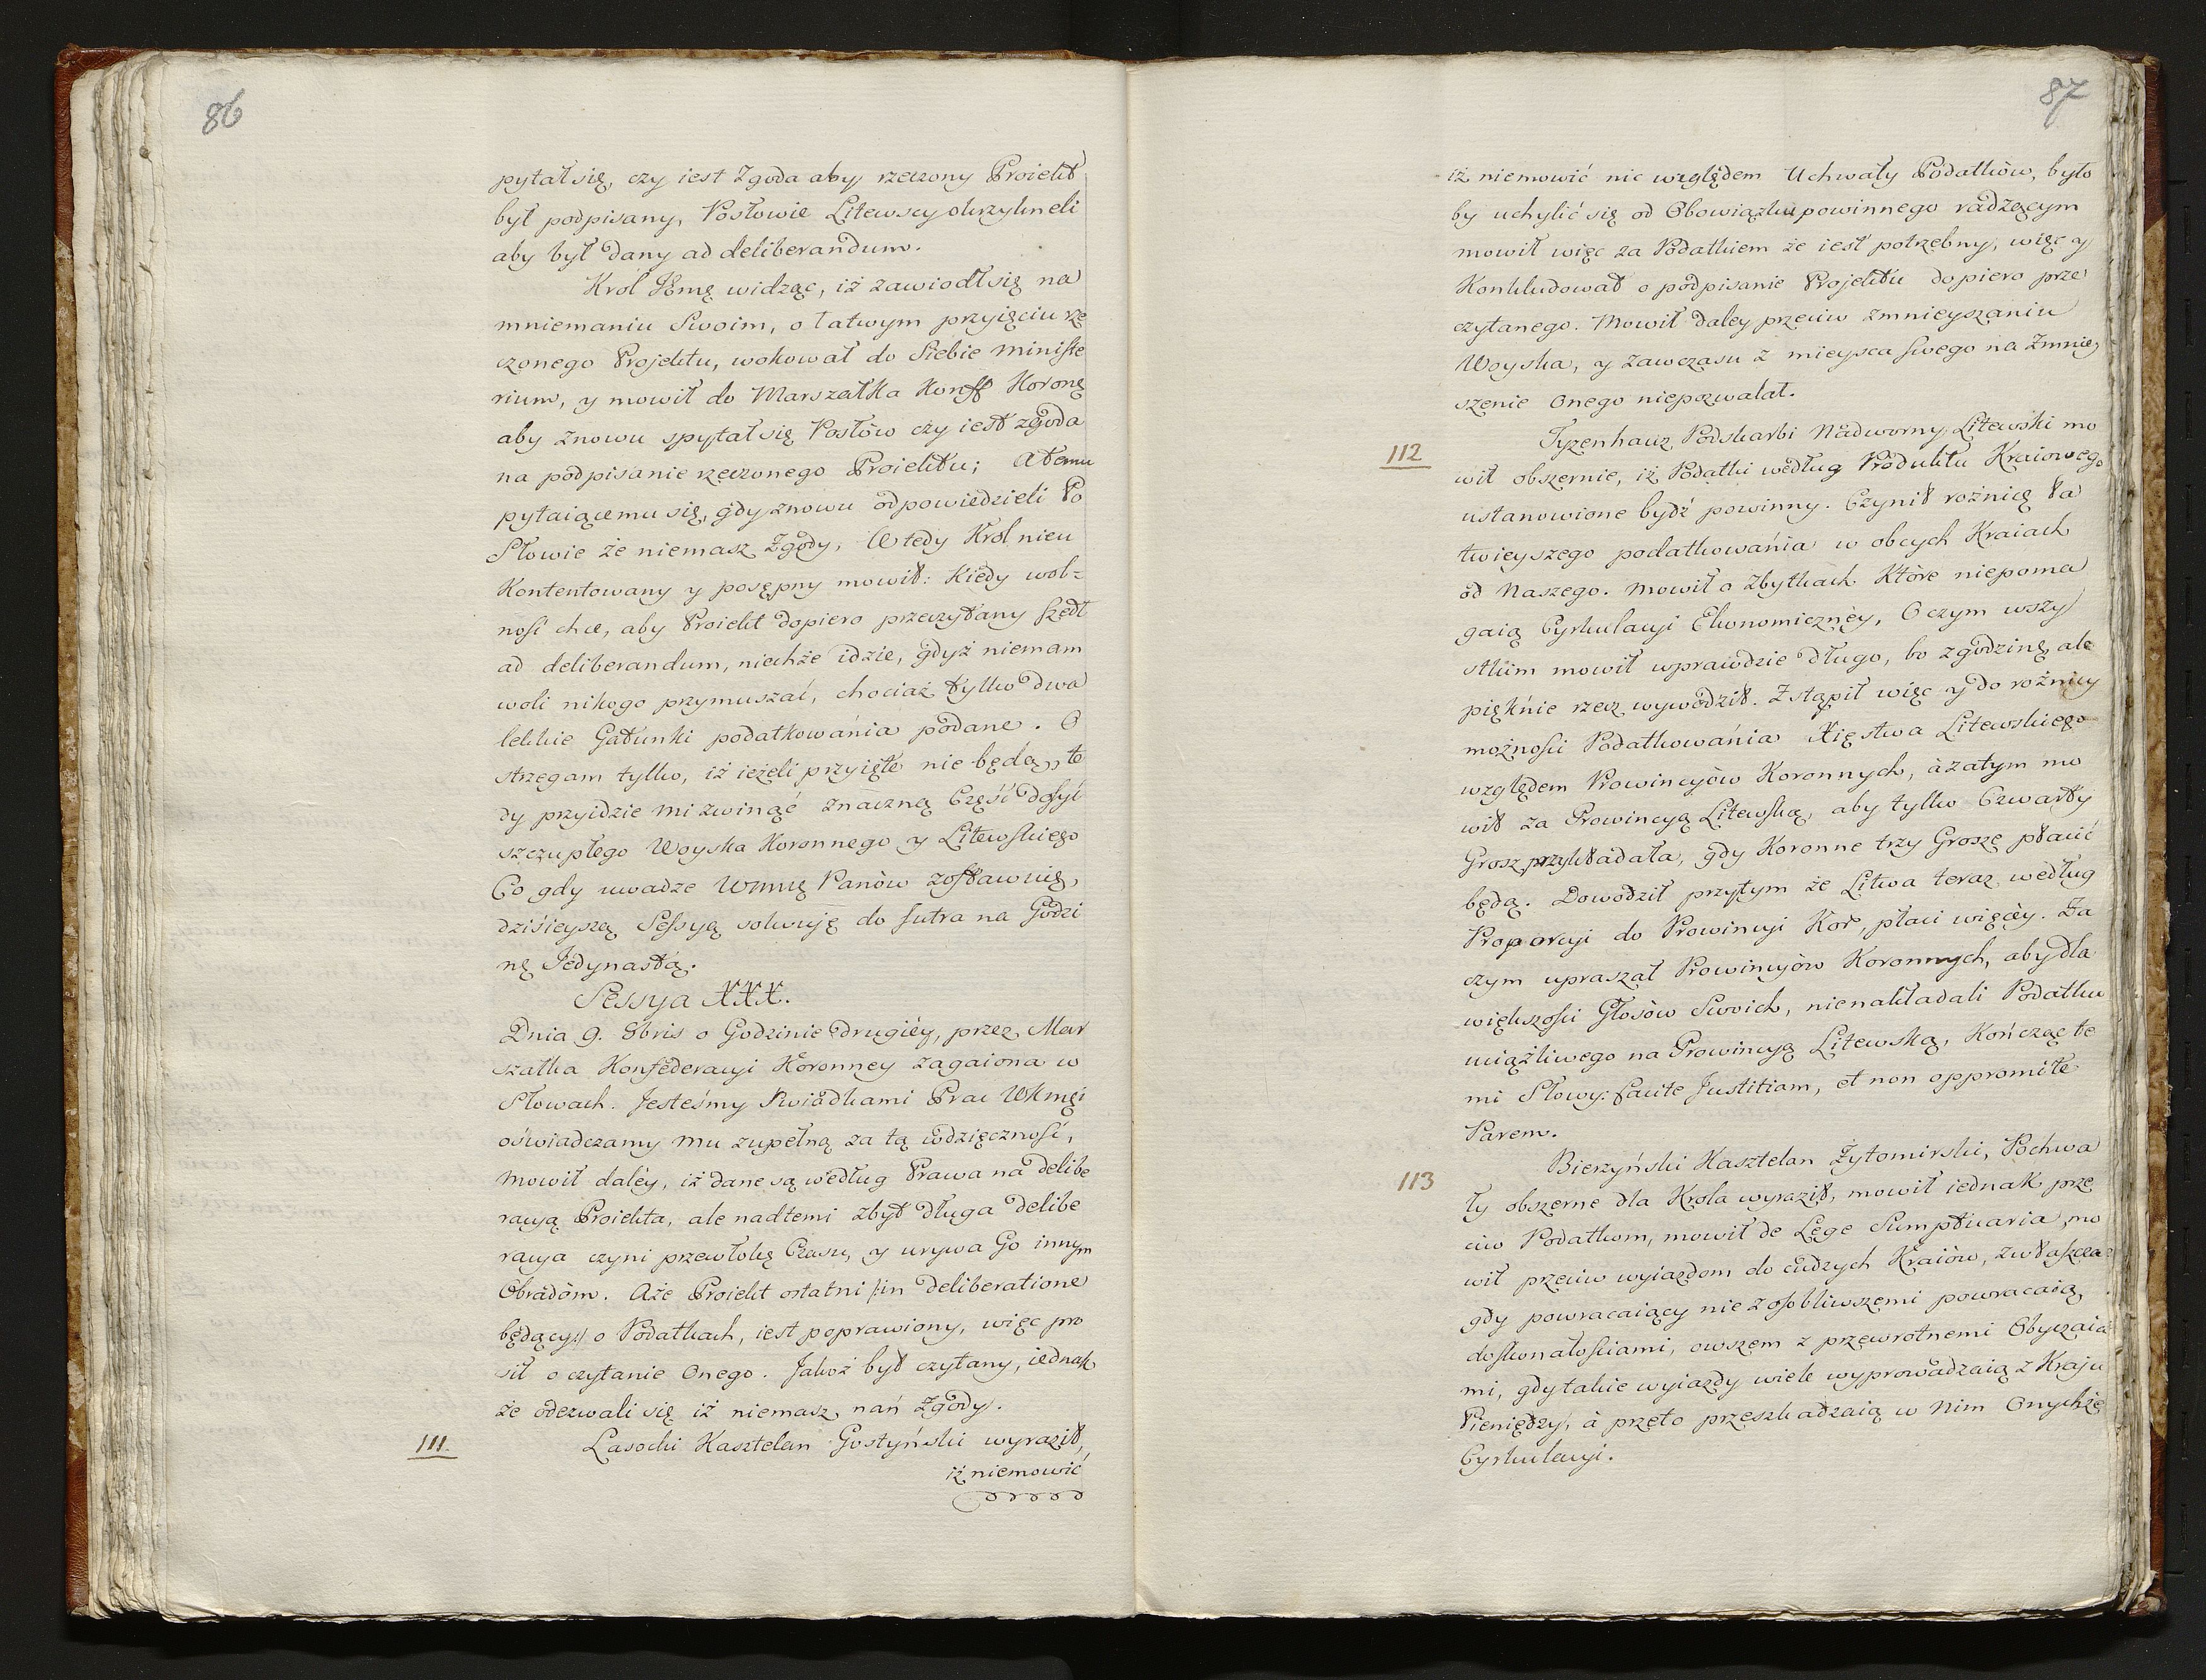 86
pytał się, czy iest Zgoda aby rzeczony Proiekt
był podpisany, Posłowie Litewscy okrzykneli
aby był dany ad deliberandum.
Krol Jmę widząc, iż zawiodł się na
mniemaniu Swoim, o łatwym przyięciu rze
czonego Projektu, wokował do Siebie Ministe
rium, y mowił do Marszałka Konff Koronę
aby znowu spytał się Posłów czy iest zgoda
na podpisanie rzeczonego Proiektu; A temu
pytaiącemu się, gdy znowu odpowiedzieli Po
Słowie że niemasz Zgody, Wtedy Krol nieu
Kontentowany y posępny mowił: Kiedy wol=
nosć chce, aby Proiekt dopiero przeczytany szedł
ad deliberandum, niechże idzie, gdyż niemam
woli nikogo przymuszać, chociaż tylko dwa
lekkie Gatunki podatkowánia podane. O
strzegam tylko, iż ieżeli przyięte nie będą, te
dy przyidzie mi zwinąć znaczną Część dosyć
szczupłego Woyska Koronnego y Litewskiego
Co gdy uwadze Wmę Panów zostawuię,
dzisieyszą Sessyą solwuię do Jutra na Godzi
nę Jedynastą.
Sessya XXX.
Dnia 9. 8bris o Godzinie drugiéy, przez Mar
szałka Konfederacyi Koronney zagaiona w
Słowach. Jesteśmy Swiadkami Prac WKmęi
oświadczamy mu zupełną za tą wdzięczność,
mowił daléy, iż dane są według Prawa na delibe
racyą Proiekta, ale nad temi zbyt długa delibe
racya czyni przewłokę Czasu, y urywa Go innym
Obradom. Aże Proiekt ostatni /:in deliberatione
będący:/ o Podatkach, iest poprawiony, więc pro
sił o czytanie Onego. Jakoż był czytany, iednak
że odezwali się iż niemasz nań Zgody.
111. Lasocki Kasztelan Gostyński wyraził,
iż niemowić
87
iż niemowić nic względem Uchwały Podatków, było
by uchylić się od Obowiązku powinnego radzącym
mowił więc za Podatkiem że iest potrzebny, więc y
Konkludował o podpisanie Projektu dopiero prze
czytanego. Mowił daley przeciw zmnieyszaniu
Woyska, y zawczasu z mieysca swego na Zmniey
szenie Onego niepozwalał.
112 Tyzenhauz Podskarbi Nadworny Litewski mo
wił obszernie, iż Podatki według Produktu Kraiowego
ustanowione bydź powinny. Czynił rożnicę ła
twieyszego podatkowánia w obcych Kraiach
od Naszego. Mowił o Zbytkach Które niepoma
gaią Cyrkulacyi Ekonomicznéy, O czym wszy
stkim mowił wprawdzie długo, bo z godzinę, ale
pięknie rzecz wywodził. Zstąpił więc y do rożnicy
możnosci Podatkowánia Xięstwa Litewskiego
względem Prowincyów Koronnych, à zatym mo
wił za Prowincyą Litewską, aby tylko Czwarty
Grosz przykładała, gdy Koronne trzy Grosze płacić
będą. Dowodził przytym że Litwa teraz według
Proporcyi do Prowincyi Kor, płaci więcéy. Za
czym upraszał Prowincyów Koronnych, aby dla
większosci Głosów Swoich, nienakładali Podatku
uciążliwego na Prowincyą Litewską, Kończąc te
mi Słowy: facite Justitiam, et non oppromite
Parem.
113 Bierzyński Kasztelan Żytomirski, Pochwa
ły obszerne dla Krola wyraził, mowił iednak prze
ciw Podatkom, mowił de Lege Sumptuaria, mo
wił przeciw wyiazdom do cudzych Kraiów, zwłaszcza
gdy powracaiący nie z osobliwszemi powracaią
doskonałosciami, owszem z przewrotnemi Obyczaia
mi, gdy takie wyiazdy wiele wyprowadzaią z Kraju
Pieniędzy, à przeto przeszkadzaią w Nim Onychże
Cyrkulacyi.